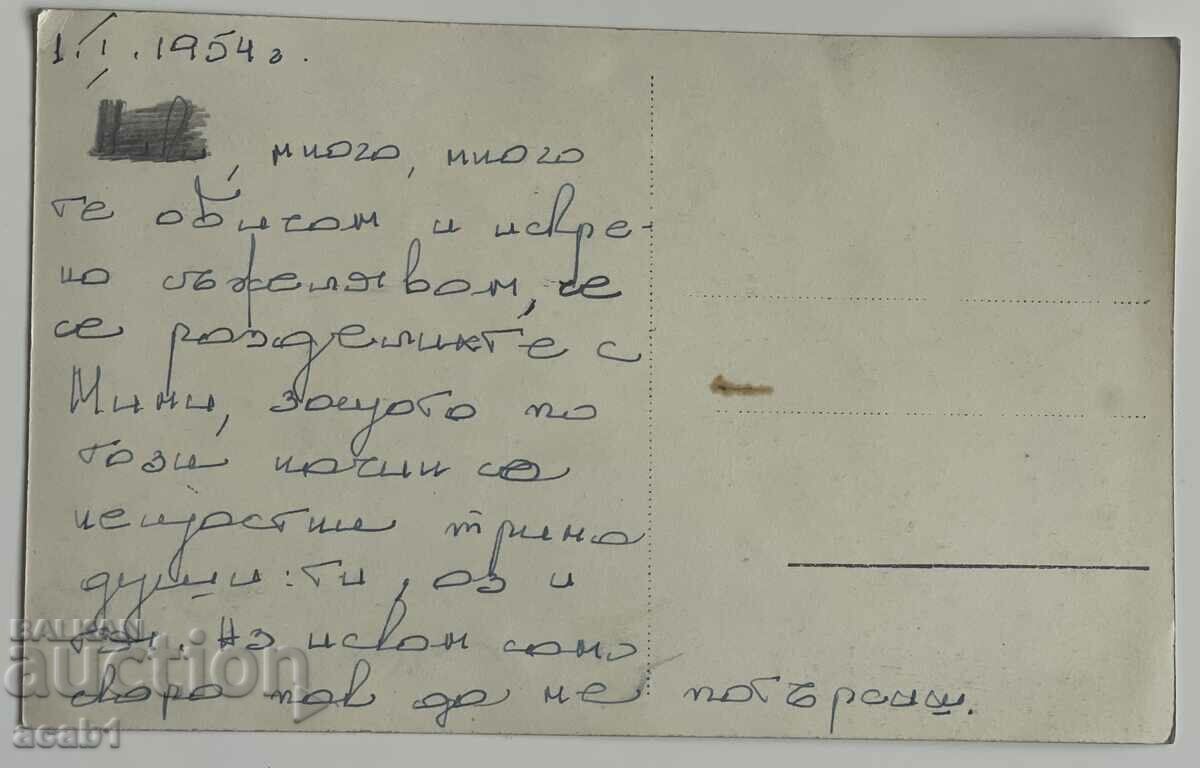 1.I.1954 г.
, много, много
те обичам и искре-
но съжелявам, че
се разделихте с
Мини, защото по
този начин са
нещастни трима
души: ти, аз и
тя. Аз искам само
скоро пак да не потърсиш.
BALKAN
auction
acab1